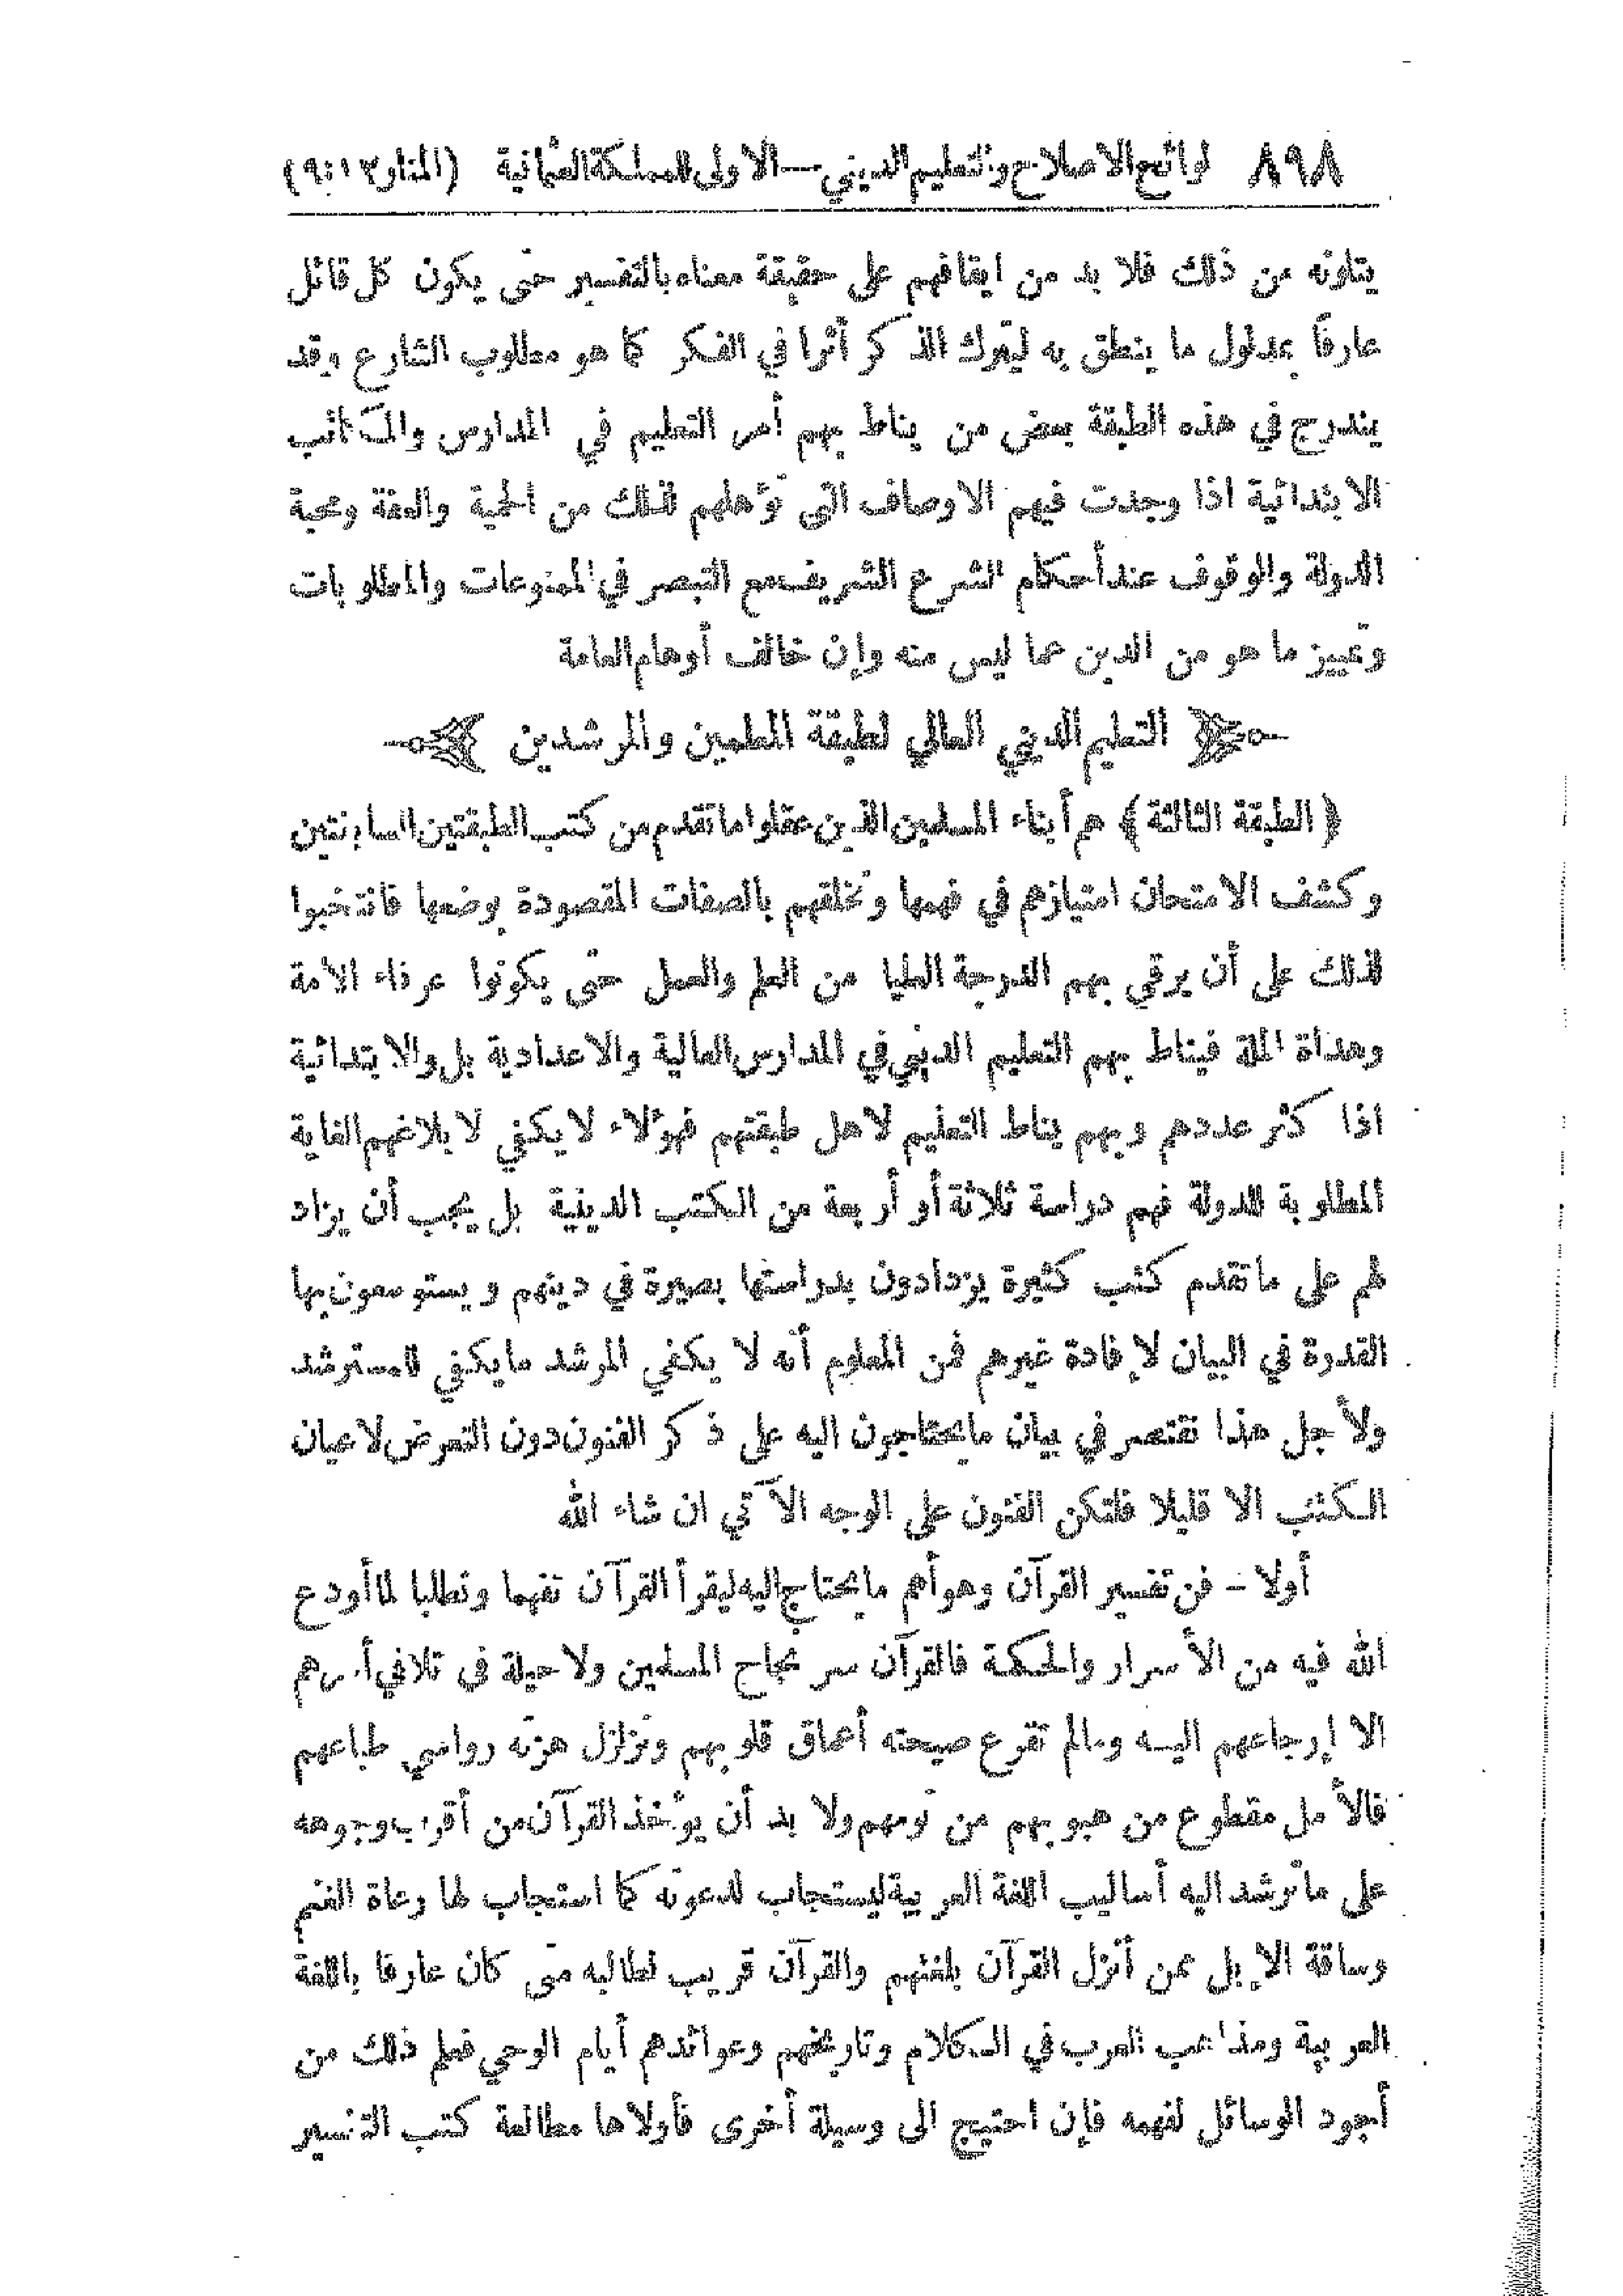 ٨٩٨ لوائح الاصلاح والتعليم الديني — الاولى للمملكة العثمانية (المنار ١٢: ٩)
يتلونه من ذلك فلا بد من ايقافهم على حقيقة معناه بالتفسير حتى يكون كل قائل
عارفاً بمدلول ما ينطق به ليترك الذكر أثرا في الفكر كما هو مطلوب الشارع وقد
يندرج في هذه الطبقة بعض من يناط بهم أمر التعليم في المدارس والمكاتب
الابتدائية اذا وجدت فيهم الاوصاف التي تؤهلهم لذلك من الحمية والعفة ومحبة
الدولة والوقوف عند أحكام الشرع الشريف مع التبصر في الممنوعات والمطلوبات
وتمييز ما هو من الدين عما ليس منه وإن خالف أوهام العامة
التعليم الديني العالي لطبقة المعلمين والمرشدين
﴿ الطبقة الثالثة ﴾ هم أبناء المسلمين الذين عقلوا ما تقدم من كتب الطبقتين السابقتين
وكشف الامتحان امتيازهم في فهمها وتخلقهم بالصفات المقصودة بوضعها فانتخبوا
لذلك على أن يرقي بهم الدرجة العليا من العلم والعمل حتى يكونوا عرفاء الامة
وهداة الملة فيناط بهم التعليم الديني في المدارس العالية والاعدادية بل والابتدائية
اذا كثر عددهم وبهم يناط التعليم لاهل طبقتهم فهؤلاء لا يكفي لا بلاغهم الغاية
المطلوبة للدولة فهم دراسة ثلاثة أو أربعة من الكتب الدينية بل يجب أن يزاد
لهم على ما تقدم كتب كثيرة يزدادون بدراستها بصيرة في دينهم ويستوسعون بها
القدرة في البيان لإفادة غيرهم فمن المعلوم أنه لا يكفي المرشد ما يكفي المسترشد
ولأجل هذا نقتصر في بيان ما يحتاجون اليه على ذكر الفنون دون التعرض لاعيان
الكتب الا قليلا فلتكن الفنون على الوجه الآتي ان شاء الله
أولا – فن تفسير القرآن وهو أهم ما يحتاج اليه ليقرأ القرآن تفهما وتطلبا لما أودع
الله فيه من الأسرار والحكمة فالقرآن سر نجاح المسلمين ولا حيلة في تلافي أمرهم
الا إرجاعهم اليه ومالم تقرع صيحته أعماق قلوبهم وتزلزل هزته رواسي طباعهم
فالأمل مقطوع من هبوبهم من نومهم ولا بد أن يؤخذ القرآن من أقرب وجوهه
على ما ترشد اليه أساليب اللغة العربية ليستجاب لدعوته كما استجاب لها رعاة الغنم
وساقة الإبل ممن أنزل القرآن بلغتهم والقرآن قريب لطالبه متى كان عارفا باللغة
العربية ومذاهب العرب في الكلام وتاريخهم وعوائدهم أيام الوحي فعلم ذلك من
أجود الوسائل لفهمه فإن احتيج الى وسيلة أخرى فأولاها مطالعة كتب التفسير